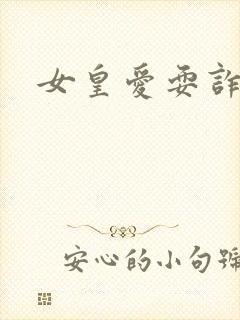 女皇愛耍詐
安心的小句號